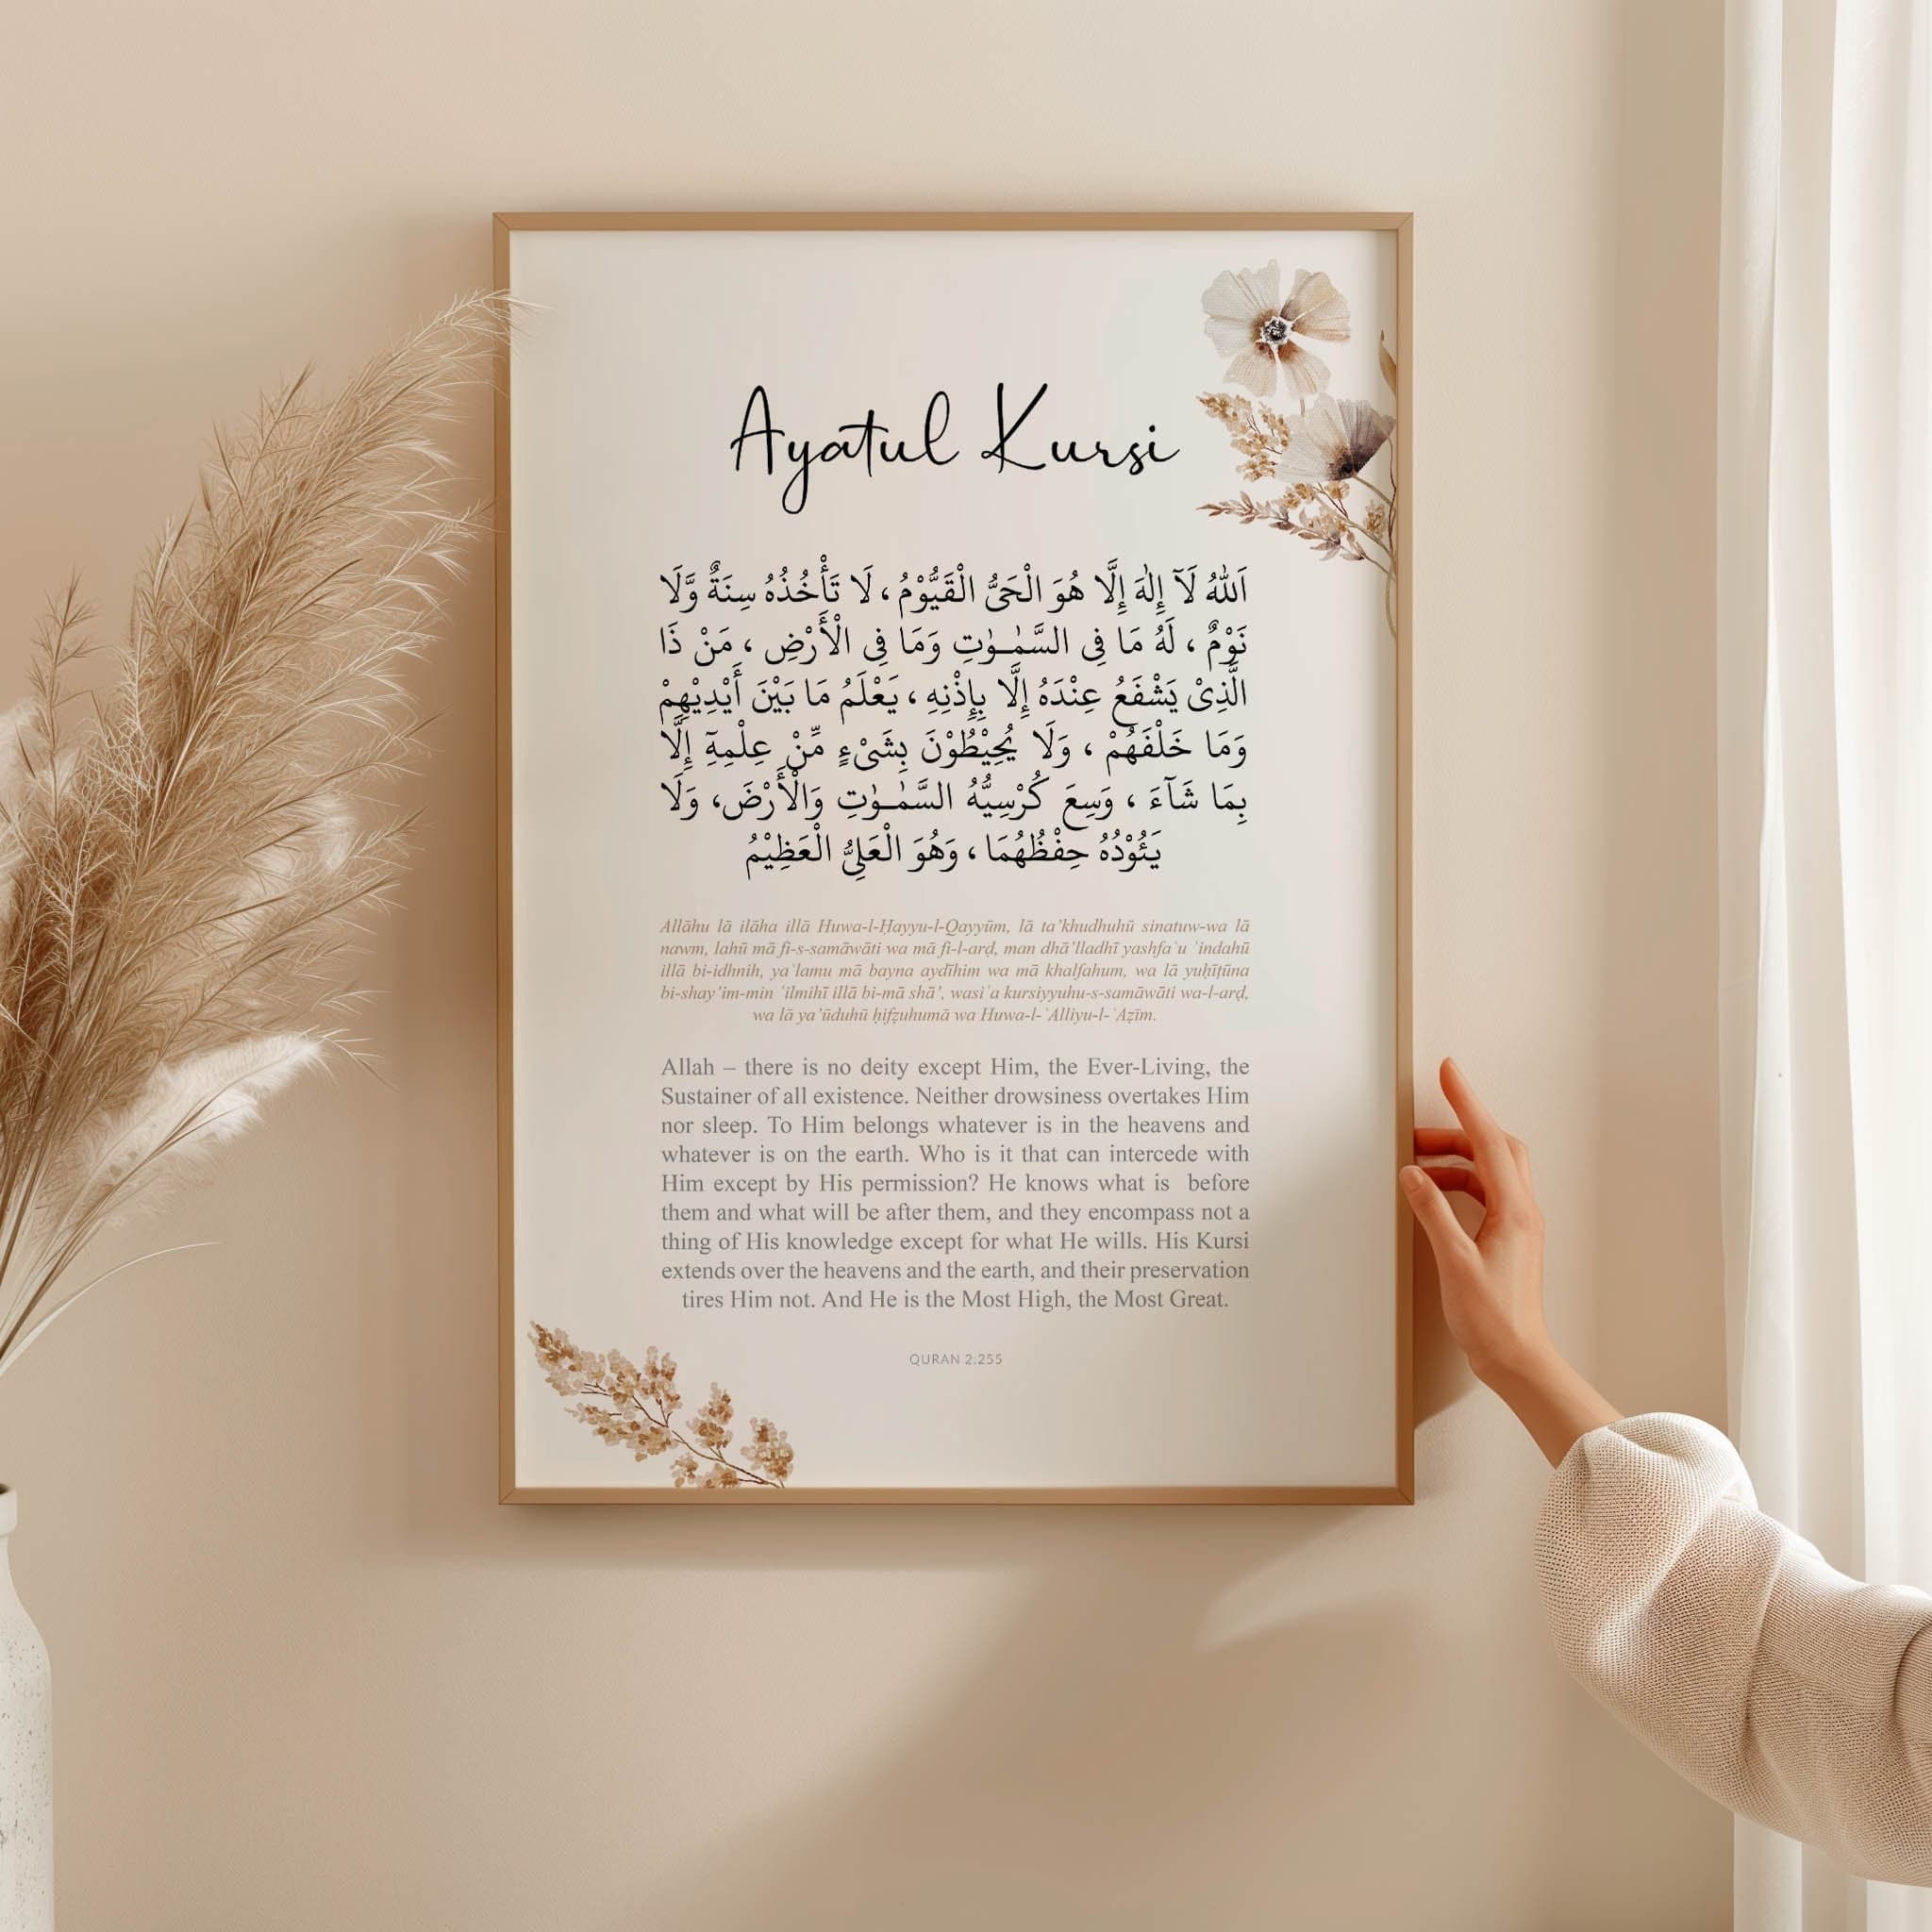 Ayatul Kursi
اَللّٰهُ لَآ إِلٰهَ إِلَّا هُوَ الْحَيُّ الْقَيُّوْمُ، لَا تَأْخُذُهُ سِنَةٌ وَّلَا
نَوْمٌ ، لَهُ مَا فِى السَّمٰـوٰتِ وَمَا فِى الْأَرْضِ ، مَنْ ذَا
الَّذِىْ يَشْفَعُ عِنْدَهُ إِلَّا بِإِذْنِهِ ، يَعْلَمُ مَا بَيْنَ أَيْدِيْهِمْ
وَمَا خَلْفَهُمْ ، وَلَا يُحِيْطُوْنَ بِشَىْءٍ مِّنْ عِلْمِهٓ إِلَّا
بِمَا شَآءَ ، وَسِعَ كُرْسِيُّهُ السَّمٰـوٰتِ وَالْأَرْضَ، وَلَا
يَئُوْدُهُ حِفْظُهُمَا ، وَهُوَ الْعَلِىُّ الْعَظِيْمُ
Allāhu lā ilāha illā Huwa-l-Ḥayyu-l-Qayyūm, lā ta’khudhuhū sinatuw-wa lā
nawm, lahū mā fi-s-samāwāti wa mā fi-l-arḍ, man dhā’lladhī yashfaʿu ʿindahū
illā bi-idhnih, yaʿlamu mā bayna aydīhim wa mā khalfahum, wa lā yuḥīṭūna
bi-shay’im-min ʿilmihī illā bi-mā shā’, wasiʿa kursiyyuhu-s-samāwāti wa-l-arḍ,
wa lā ya’ūduhū ḥifẓuhumā wa Huwa-l-ʿAlliyu-l-ʿAẓīm.
Allah – there is no deity except Him, the Ever-Living, the
Sustainer of all existence. Neither drowsiness overtakes Him
nor sleep. To Him belongs whatever is in the heavens and
whatever is on the earth. Who is it that can intercede with
Him except by His permission? He knows what is before
them and what will be after them, and they encompass not a
thing of His knowledge except for what He wills. His Kursi
extends over the heavens and the earth, and their preservation
tires Him not. And He is the Most High, the Most Great.
QURAN 2:255